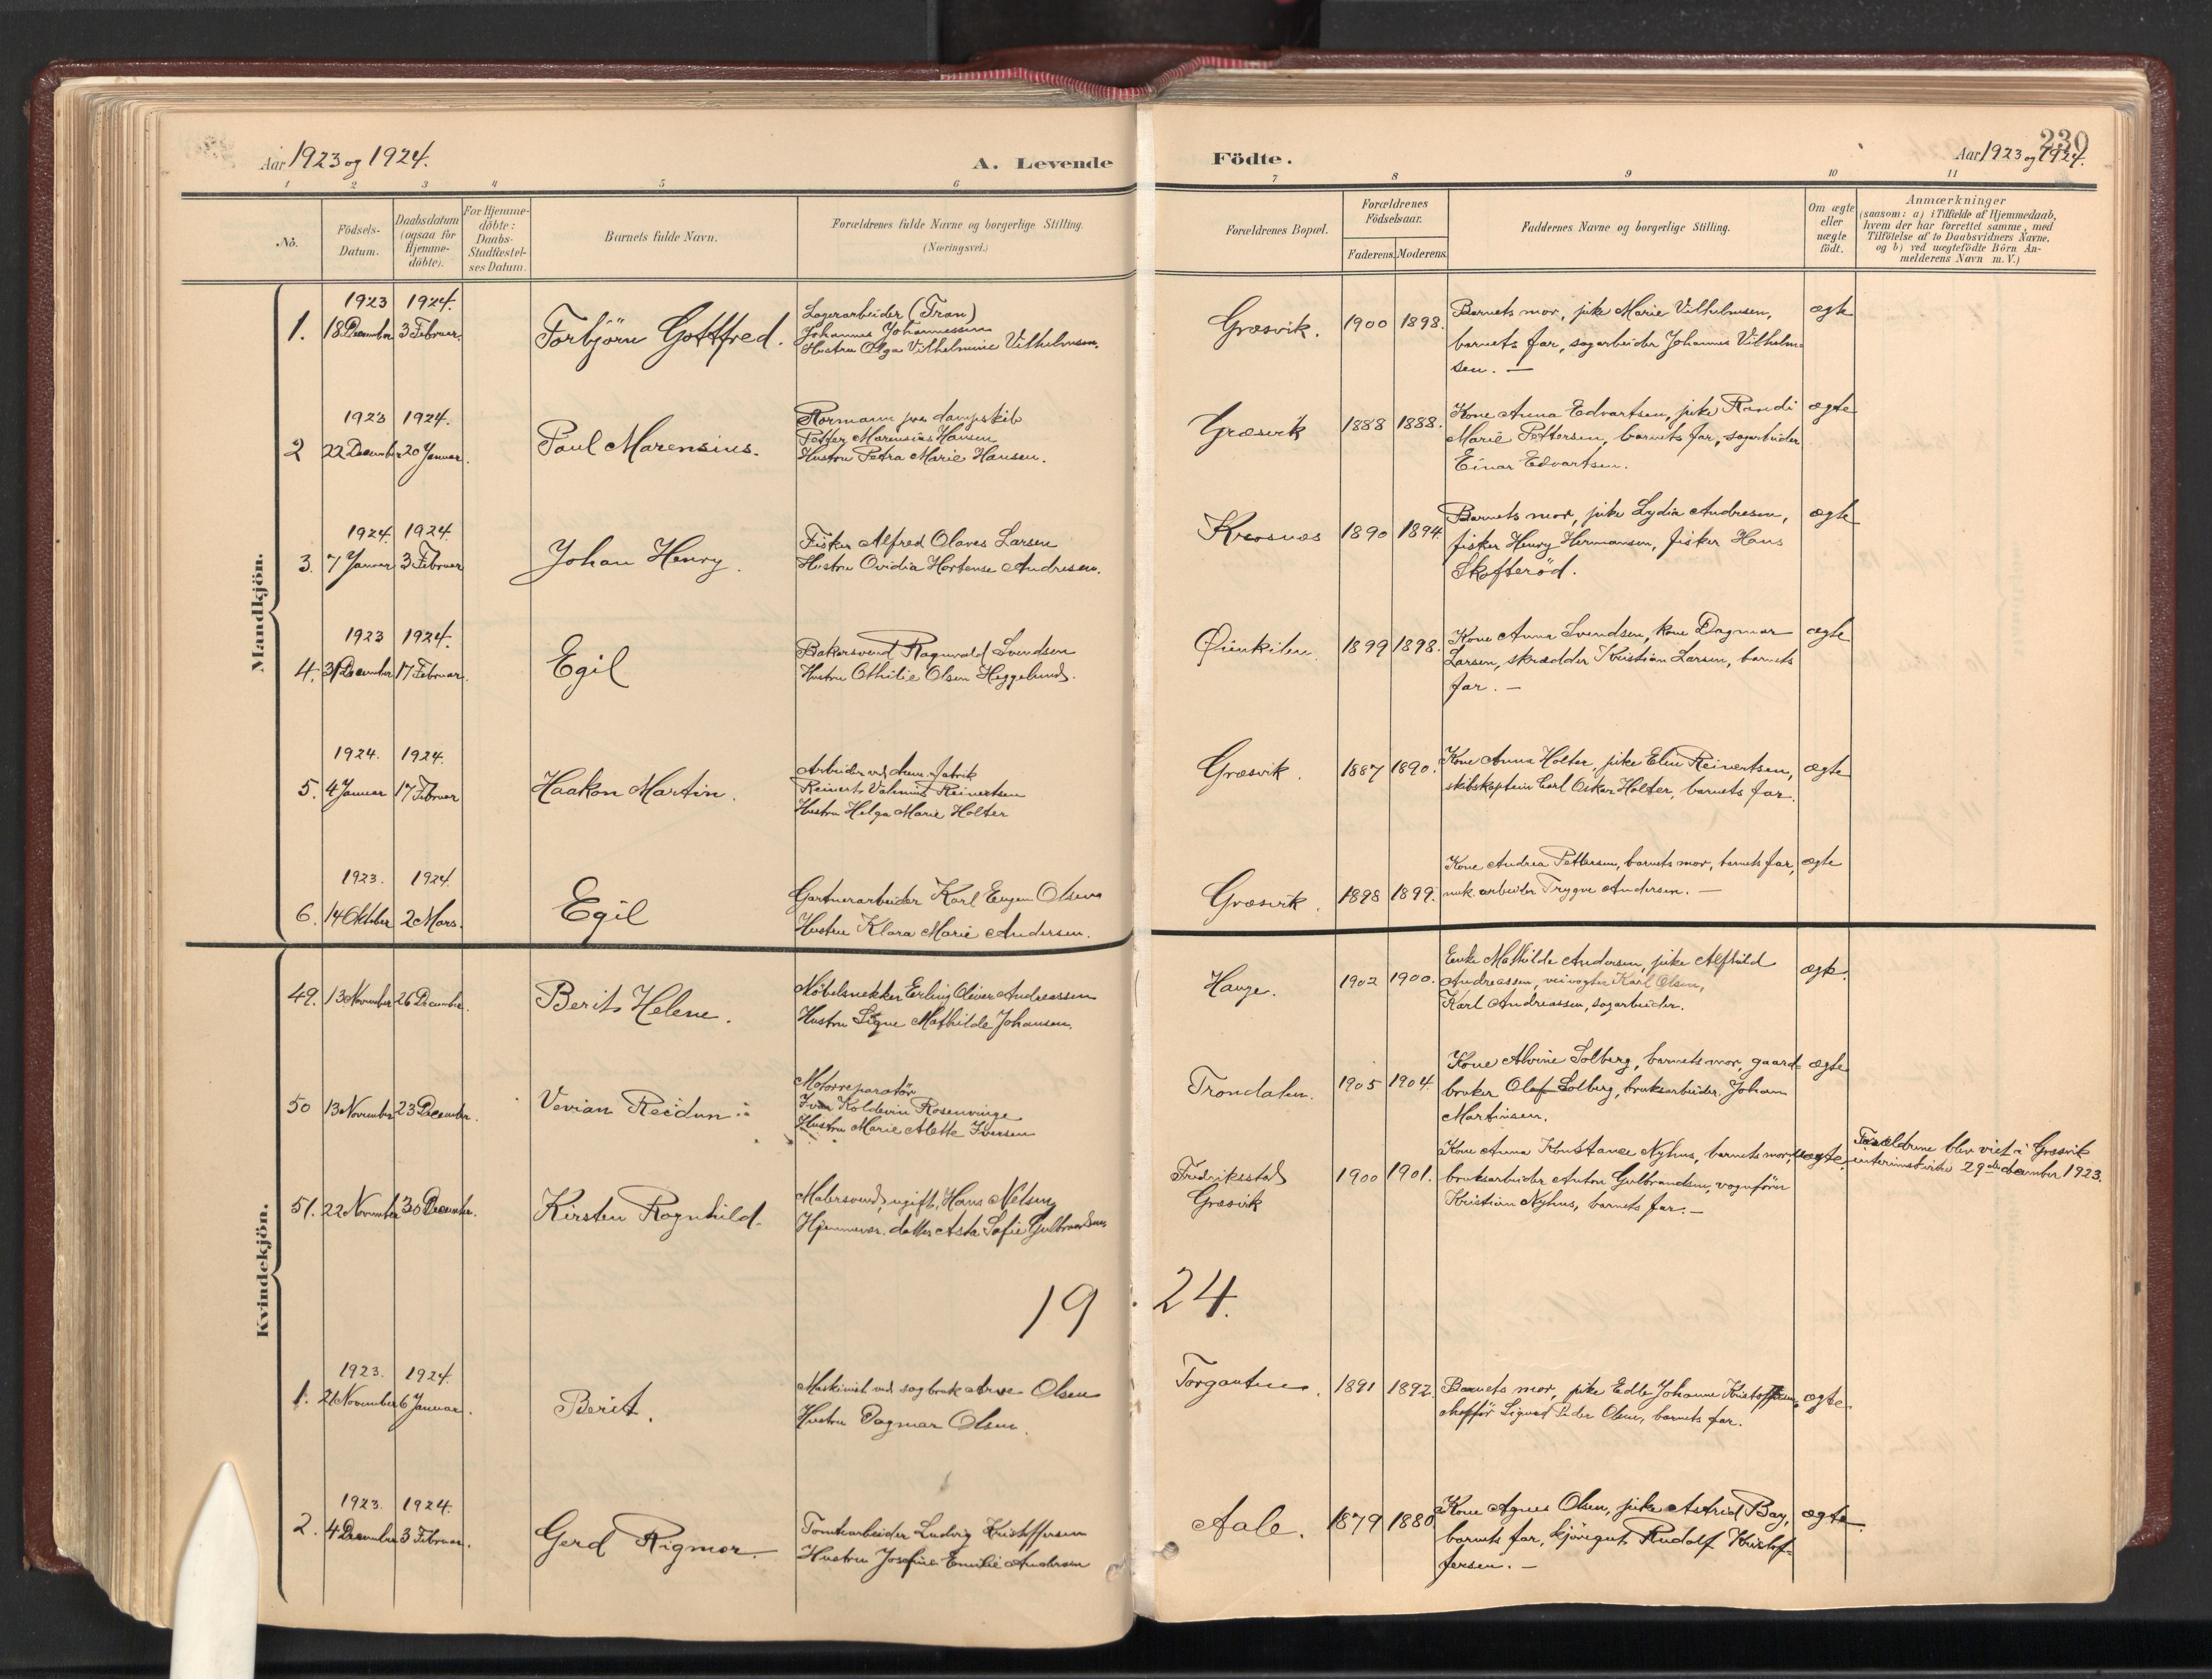 Aar 1923 og 1924.
A. Levende Födte.
230
Aar 1923 og 1924.
1 2 3 4 5 6 7 8 9 10 11
No.
Födsels-
Datum.
Daabsdatum
(ogsaa for
Hjemme-
döbte).
For Hjemme-
döbte:
Daabs-
Stadfæstel-
ses Datum.
Barnets fulde Navn.
Forældrenes fulde Navne og borgerlige Stilling.
(Næringsvei.)
Forældrenes Bopæl.
Forældrenes
Födselsaar.
Faderens. Moderens.
Faddernes Navne og borgerlige Stilling.
Om ægte
eller
uægte
födt.
Anmærkninger
(saasom: a) i Tilfælde af Hjemmedaab,
hvem der har forrettet samme, med
Tilföielse af to Daabsvidners Navne,
og b) ved uægtefödte Börn An-
melderens Navn m. V.)
Mandkjön.
1923 1924.
1. 18 December 3 Februar.
Torbjörn Gottfred.
Lagerarbeider (Tran)
Johannes Johannessen
Hustru Olga Vilhelmine Vilhelmsen.
Græsvik. 1900 1898.
Barnets mor, pike Marie Vilhelmsen,
barnets far, sagarbeider Johannes Vilhelm-
sen. —
ægte
1923 1924.
2 22 December 20 Januar.
Paul Marensius.
Stormann paa dampskib
Petter Marensius Hansen
Hustru Petra Marie Hansen.
Græsvik 1888 1888.
Kone Anna Edvartsen, pike Randi
Marie Pettersen, barnets far, sagarbeider
Einar Edvartsen.
ægte
1924. 1924.
3. 7 Januar 3 Februar
Johan Henry.
Fisker Alfred Olaves Larsen
Hustru Ovidia Hortense Andresen.
Krosnæs 1890 1894.
Barnets mor, pike Lydia Andresen,
fisker Henry Hermansen, fisker Hans
Skofteröd.
ægte
1923 1924.
4. 31 December 17 Februar.
Egil
Bakersvend Ragnvald Svendsen
Hustru Othilie Olsen Heggelund.
Øienkilen. 1899 1898.
Kone Anna Svendsen, kone Dagmar
Larsen, skrædder Kristian Larsen, barnets
far. —
ægte
1924. 1924.
5. 4 Januar 17 Februar
Haakon Martin.
Arbeider ved kem. fabrik
Reinert Reinertsen
Hustru Helga Marie Holter
Græsvik. 1887 1890.
Kone Anna Holter, pike Elin Reinertsen,
skibskaptein Carl Oskar Holter, barnets far.
ægte
1923. 1924.
6. 14 Oktober 2 Mars.
Egil
Gartnerarbeider Karl Eugen Olsen
Hustru Klara Marie Andersen.
Græsvik. 1898 1899.
Kone Andrea Pettersen, barnets mor, barnets far,
mek. arbeider Trygve Andersen. —
ægte
Kvindekjön.
49. 13 November 26 December.
Berit Helene.
Möbelsnekker Erling Oliver Andreassen
Hustru Signe Mathilde Johansen.
Hauge. 1902 1900.
Enke Mathilde Andersen, pike Alfhild
Andreassen, veivogter Karl Olsen,
Karl Andreassen, sagarbeider.
ægte.
50 13 November 23 December.
Vevian Reidun
Motorreparatör
Ivar Koldevin Rosenvinge
Hustru Marie Alette Iversen
Trondalen. 1905 1904.
Kone Alvine Solberg, barnets mor, gaard-
bruker Olaf Solberg, bruksarbeider Johan
Martinsen.
ægte
51. 22 November 30 December.
Kirsten Ragnhild.
Malersvend, ugift, Hans Nelsing
Hjemmevær. datter Asta Sofie Gulbrandsen
Fredriksstad
Græsvik
1900 1901.
Kone Anna Konstance Nyhus, barnets mor,
bruksarbeider Anton Gulbrandsen, vognförer
Kristian Nyhus, barnets far. —
uægte.
Forældrene blev viet i Græsvik
interimskirke 29de december 1923.
19 24.
1923. 1924.
1. 21 November 6 Januar.
Berit.
Maskinist ved sagbruk Arve Olsen
Hustru Dagmar Olsen.
Torgauten. 1891 1892.
Barnets mor, pike Edle Johanne Kristoffersen,
chafför Sigurd Peder Olsen, barnets far.
ægte.
1923. 1924.
2. 4 December 3 Februar.
Gerd Rigmor.
Tomtearbeider Ludvig Kristoffersen
Hustru Josefine Emilie Andersen
Aale. 1879 1880
Kone Agnes Olsen, pike Astrid Bay,
barnets far, kjöregut Rudolf Kristof-
fersen. —
ægte.